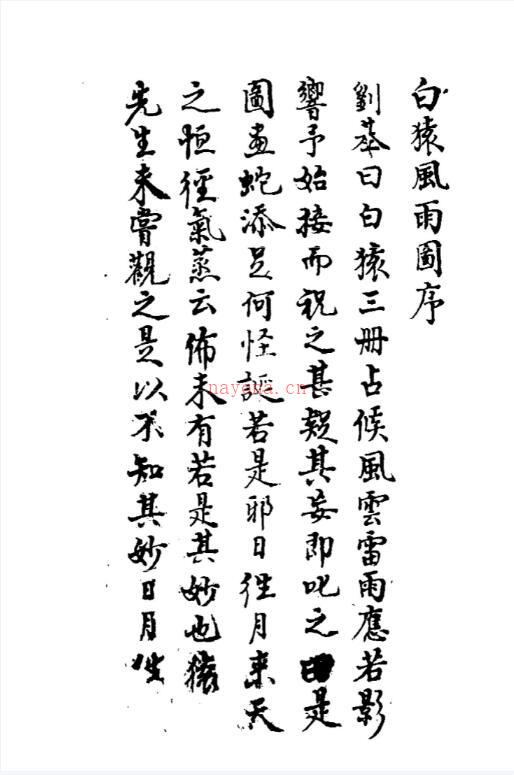 白猿風雨圖序
劉基曰白猿三册占候風雲雷雨應若影
響予始接而視之甚疑其妄即叱之曰是
圖畫蛇添足何怪誕若是邪日徃月来天
之恒徑氣蒸云佈未有若是其妙也猿
先生未嘗觀之是以不知其妙日月徃
nayona.cn